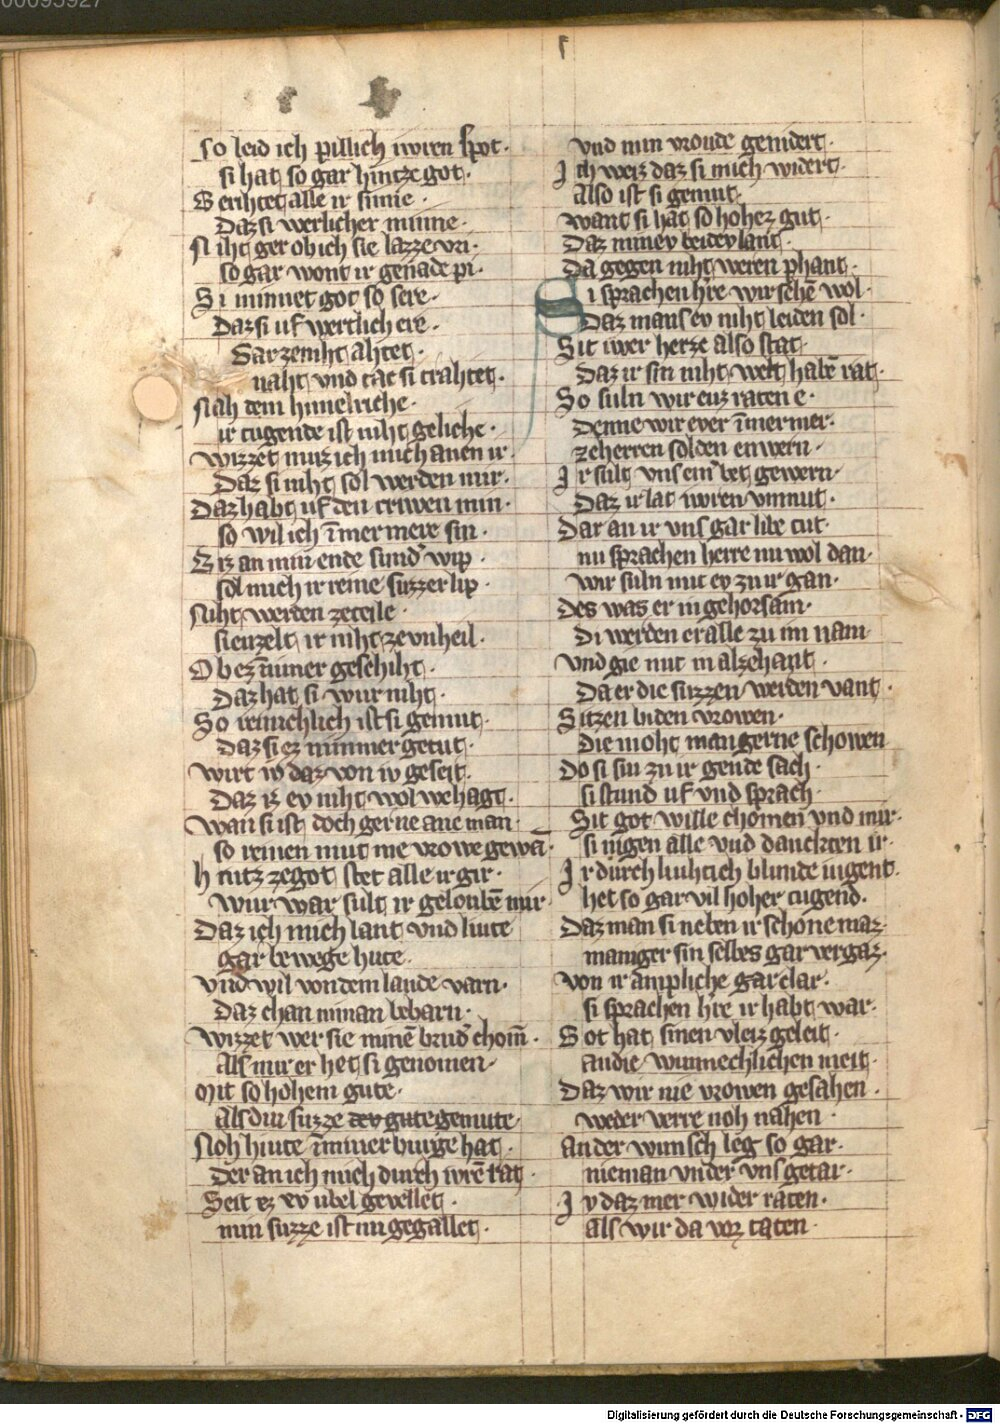 00095927
So leid ich pillich iwren spot·
si hat so gar hintze got·
Gerihtet alle ir sinne·
Daz si werlicher minne·
Niht ger ob ich sie lazze vri·
so gar wont ir genade pi·
Si minnet got so sere·
Daz si uf wertlich ere·
Gar ze niht ahtet·
naht vnd tac si trahtet·
Nah dem himelriche·
ir tugende ist niht geliche·
wizzet muz ich mich anen ir·
Daz si niht sol werden mir·
Daz habt uf den triwen min·
so wil ich īmer mere sin·
Biz an min ende sund' wip·
sol mich ir reine suzzer lip·
Niht werden ze teile·
si enzelt ir niht ze vnheil·
Ob ez nimer geschiht·
Daz hat si wur niht·
So reinchlich ist si gemut·
Daz si ez nimmer getut·
wirt iv daz von iv geseit·
Daz iz ev niht wol wehagt·
wan si ist doch gerne ane man·
so reinen mut nie vrowe gewā·
hintz ze got stet alle ir gir·
wur war sult ir geloubē mir
Daz ich mich lant vnd liute
gar bewege hute·
vnd wil von dem lande varn·
Daz chan niman bebarn·
wizzet wer sie minē brud' chom̄·
Als mir er het si genomen·
Mit so hohem gute·
als div suzze der gute gemute·
Noh hiute īmmer burge hat·
Der an ich mich durch iwrē rat·
Seit ez ev ubel gevellet·
min suzze ist nu gegallet·
vnd min vroude genidert·
Ich weiz daz si mich widert·
Also ist si gemut·
want si hat so hohez gut·
Daz miney beidey lant·
Da gegen niht weren phant·
Si sprachen h're wir sehē wol·
Daz mans ev niht leiden sol·
Sit iwer herze also stat·
Daz ir sin niht welt habē rat·
So suln wir euz raten e·
Denne wir ever īmer mer·
ze herren solden enwern·
Ir sult vns ein bet gewern·
Daz ir lat iwren vnmut·
Dar an ir vns gar libe tut·
nu sprachen herre nu wol dan·
wir suln mit ev zu ir gan·
Des was er in gehorsam·
Di werden er alle zu im nam
vnd gie mit in alzehant·
Da er die suzzen werden vant·
Sitzen biden vrowen·
die moht man gerne schowen
Do si sin zu ir gende sach·
si stund uf vnd sprach·
Sit got wille chomen vnd mir·
si nigen alle vnd danckten ir·
Ir durch liuhtich blunde iugent·
het so gar vil hoher tugend·
Daz man si neben ir schone maz·
maniger sin selbes gar vergaz·
von ir ampliche gar clar·
si sprachen h're ir habt war·
Got hat sinen vleiz geleit·
an die wunnechlichen meit·
Daz wir nie vrowen gesahen·
weder verre noh nahen·
An der wunsch leg so gar·
nieman vnder vns getar·
Iv daz mer wider raten·
als wir da vor taten·
Digitalisierung gefördert durch die Deutsche Forschungsgemeinschaft - DFG